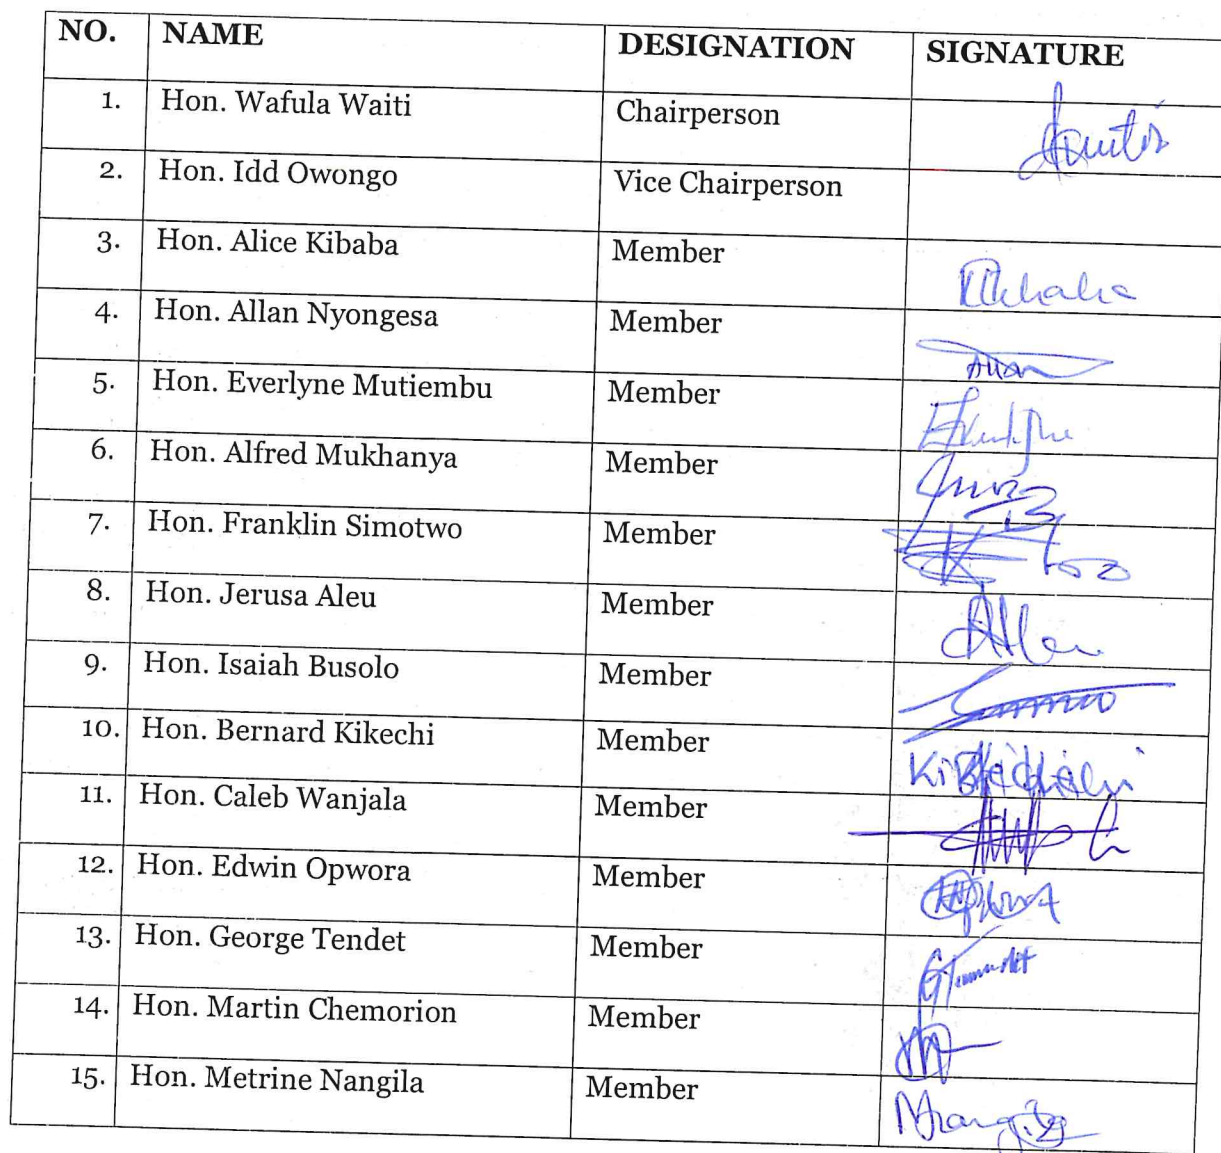 NO. NAME DESIGNATION SIGNATURE
1. Hon. Wafula Waiti Chairperson
2. Hon. Idd Owongo Vice Chairperson
3. Hon. Alice Kibaba Member
4. Hon. Allan Nyongesa Member Allan
5. Hon. Everlyne Mutiembu Member
6. Hon. Alfred Mukhanya Member
7. Hon. Franklin Simotwo Member
8. Hon. Jerusa Aleu Member
9. Hon. Isaiah Busolo Member
10. Hon. Bernard Kikechi Member
11. Hon. Caleb Wanjala Member
12. Hon. Edwin Opwora Member
13. Hon. George Tendet Member
14. Hon. Martin Chemorion Member
15. Hon. Metrine Nangila Member